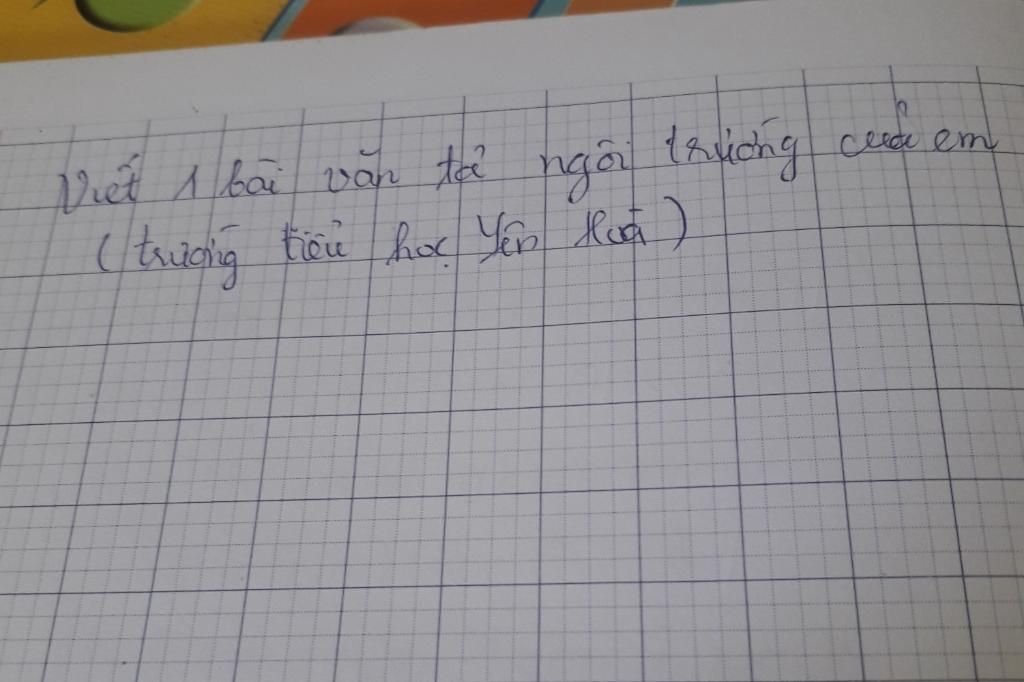 Viết 1 bài văn tả ngôi trường của em
( trường tiểu học Yên Hoà )